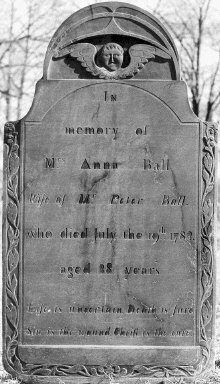 In
memory of
Mrs Anna Ball
Wife of Mr Peter Ball.
who died July the 19th 1782.
aged 28 years
Life is uncertain Death is sure
Sin is the wound Christ is the cure